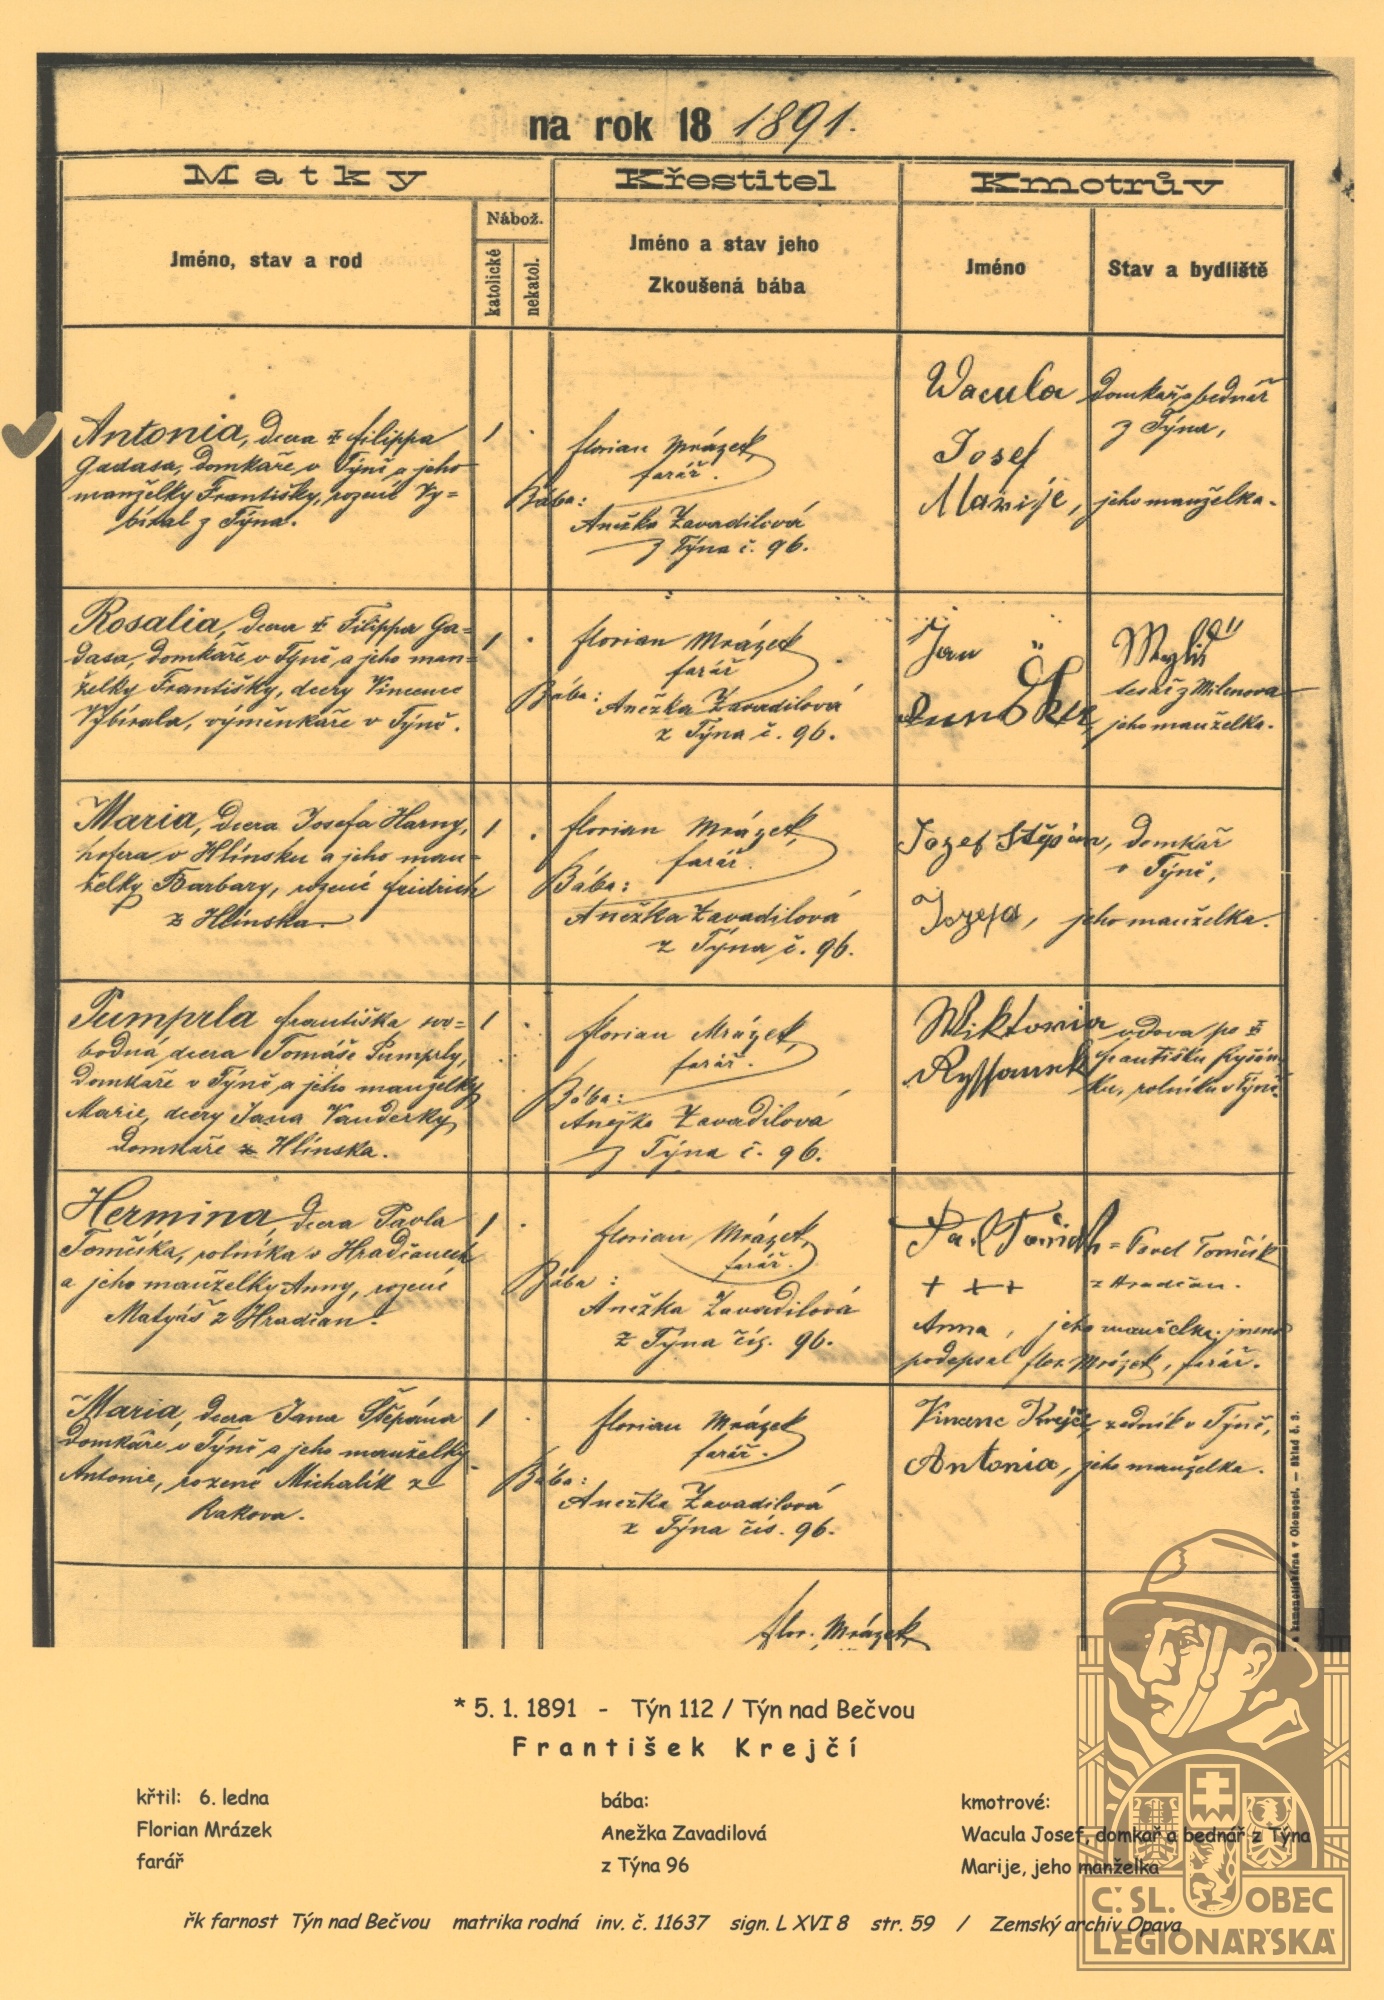 na rok 18 1891.
Matky
Křestitel
Kmotrův
Jméno, stav a rod
Nábož.
katolické
nekatol.
Jméno a stav jeho
Zkoušená bába
Jméno
Stav a bydliště
Antonia, dcera + Filippa
Gadasa, domkaře v Týně a jeho
manželky Františky, rozené Vy=
bíral z Týna.
1
Florian Mrázek,
farář.
Bába:
Anežka Zavadilová
z Týna č. 96.
Wacula domkař a bednář
z Týna,
Josef
Marije, jeho manželka.
Rosalia, dcera + Filippa Ga=
dasa, domkaře v Týně a jeho man=
želky Františky, dcery Vincence
Vybírala, výměnkaře v Týně.
1
Florian Mrázek
farář
Bába:
Anežka Zavadilová
z Týna č. 96.
Jan
tesař z Milenova
jeho manželka.
Maria, dcera Josefa Harny,
hofera v Hlinsku a jeho man=
želky Barbary, rozené Fridrich
z Hlinska.
1
Florian Mrázek,
farář.
Bába:
Anežka Zavadilová
z Týna č. 96.
Jozef Stěpán, domkař
v Týně,
Jozefa, jeho manželka.
Pumprla Františka, svo=
bodná, dcera Tomáše Pumprly,
domkaře v Týně a jeho manželky
Marie, dcery Jana Vanderky,
domkaře z Hlinska.
1
Florian Mrázek,
farář.
Bába:
Anežka Zavadilová
z Týna č. 96.
Wiktoria vdova po +
Františku Ryšán=
ku, rolníku v Týně.
Hermina, dcera Pavla
Tomčíka, rolníka v Hradčanech
a jeho manželky Anny, rozené
Matyáš z Hradčan.
1
Florian Mrázek,
farář.
Bába:
Anežka Zavadilová
z Týna čís. 96.
= Pavel Tomčík
+ + + z Hradčan.
Anna, jeho manželka: jmeno
podepsal Flor. Mrázek, farář.
Maria, dcera Jana Štěpána
domkaře v Týně a jeho manželky
Antonie, rozené Michalík z
Rakova.
1
Florian Mrázek
farář.
Bába:
Anežka Zavadilová
z Týna čís. 96.
Vincenc Krejčí, zedník v Týně,
Antonia, jeho manželka.
Flor. Mrázek,
kamenotiskárna v Olomouci. — Sklad č. 3.
* 5. 1. 1891 - Týn 112 / Týn nad Bečvou
František Krejčí
křtil: 6. ledna
Florian Mrázek
farář
bába:
Anežka Zavadilová
z Týna 96
kmotrové:
Wacula Josef, domkař a bednář z Týna
Marije, jeho manželka
řk farnost Týn nad Bečvou matrika rodná inv. č. 11637 sign. L XVI 8 str. 59 / Zemský archiv Opava
Č. SL. OBEC
LEGIONÁŘSKÁ